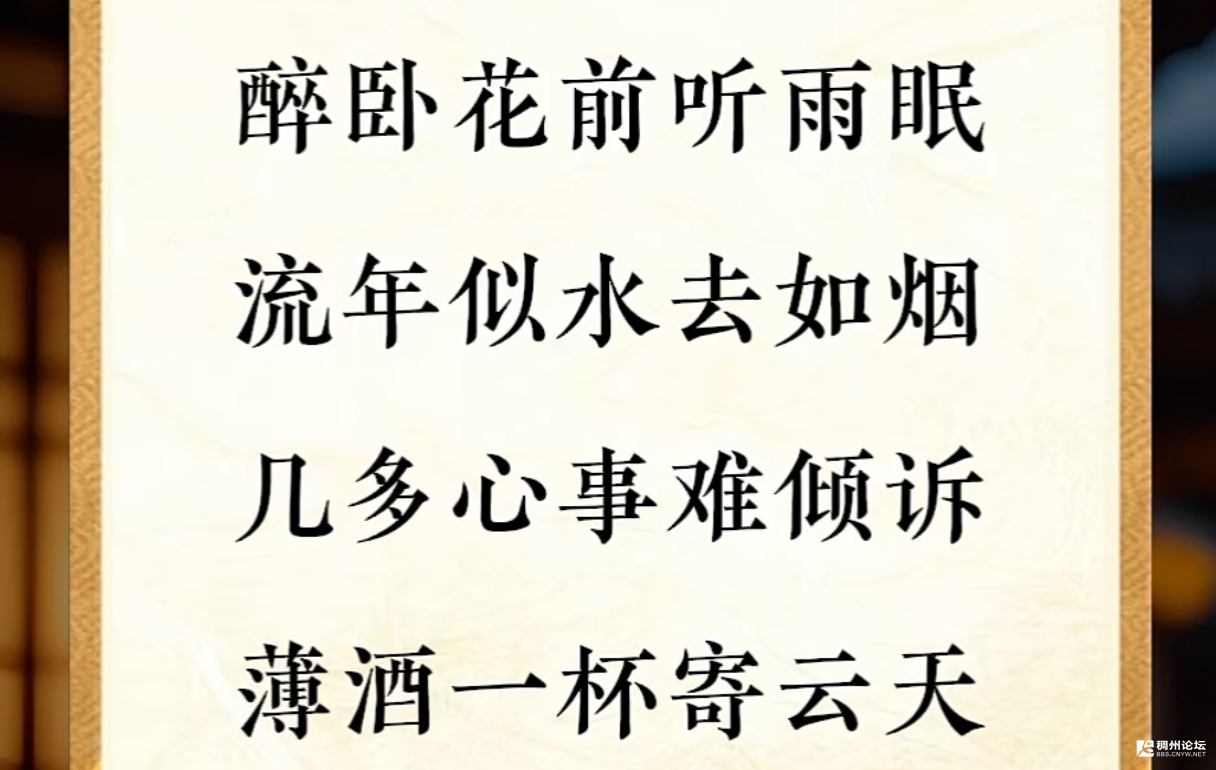 醉卧花前听雨眠
流年似水去如烟
几多心事难倾诉
薄酒一杯寄云天
稠州论坛
BBS.CNYW.NET